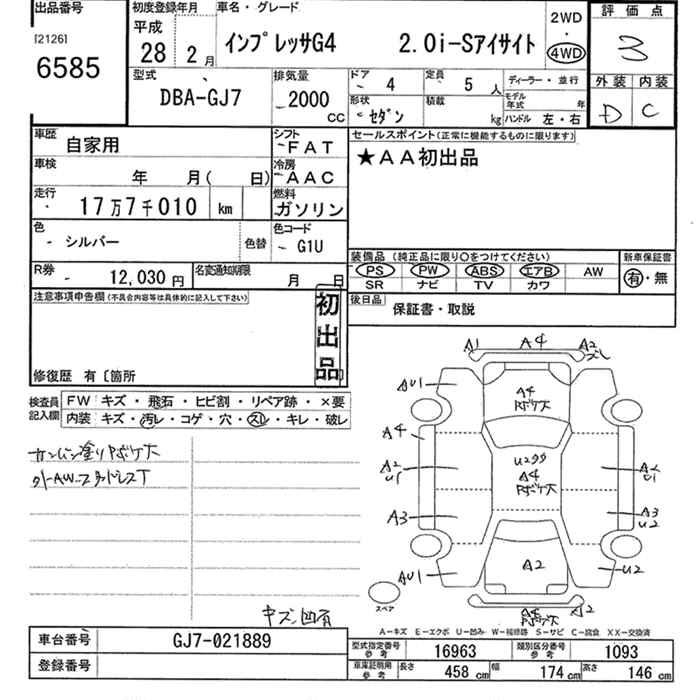 出品番号
[2126]
6585
初度登録年月
平成
28 2 月
車名・グレード
インプレッサG4 2.0i-Sアイサイト
2WD
・
4WD
評価点
3
外装 内装
D C
型式
DBA-GJ7
排気量
2000
CC
ドア
4
定員
5 人
形状
セダン
積載
kg
ディーラー・並行
モデル年式 年
ハンドル 左・右
車歴
自家用
シフト
FAT
車検
年 月( 日)
冷房
AAC
走行
17万7千010 km
燃料
ガソリン
色
シルバー
色替
色コード
G1U
R券
12,030 円
名変通知期限
月 日
セールスポイント(正常に機能するものに限ります)
★AA初出品
装備品 (純正品に限り〇をつけてください)
PS PW ABS エアB AW
SR ナビ TV カワ
新車保証書
有・無
後日品
保証書・取説
注意事項申告欄(不具合内容等は具体的に記入して下さい)
初出品
修復歴 有〔箇所
検査員
記入欄
FW キズ・飛石・ヒビ割・リペア跡・×要
内装 キズ・汚レ・コゲ・穴・スレ・キレ・破レ
キズ凹有
A1 A4 A2
AU1
A4
A4
A2
U1
U2
A4
A2
U1
A3
A3
U2
AU1
A2
U2
A4
A2
スペア
A-キズ E-エクボ U-凹み W-補修跡 S-サビ C-腐食 XX-交換済
車台番号
GJ7-021889
登録番号
型式指定番号
参考
16963
類別区分番号
参考
1093
車庫証明用
参考
長さ 458 cm 幅 174 cm 高さ 146 cm